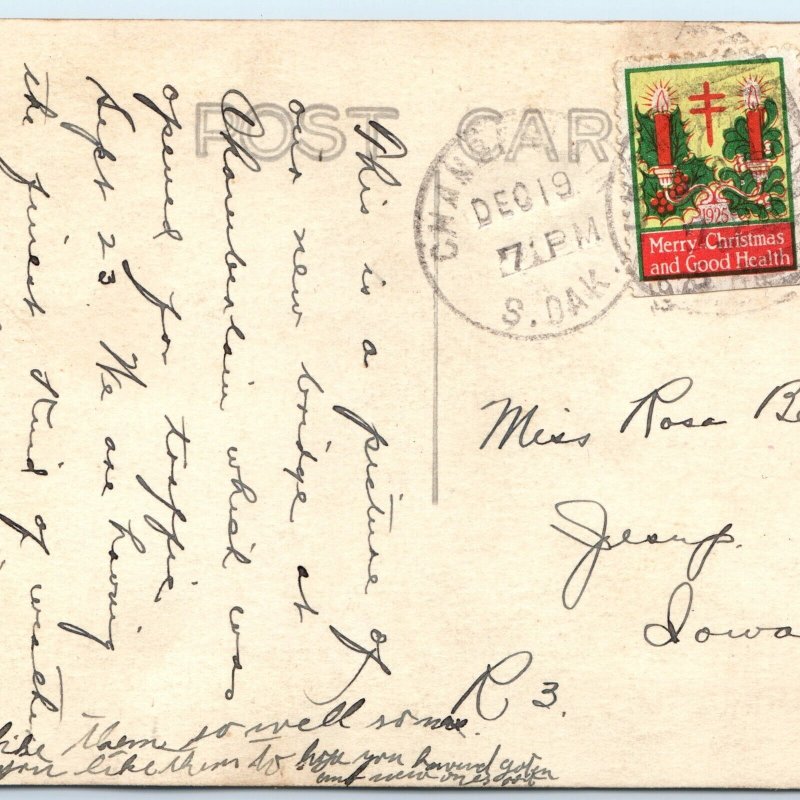 POST CARD
CHAN
DEC 19
7 PM
S. DAK.
1925
Merry Christmas
and Good Health
This is a picture of
our new bridge at
Chamberlain which was
opened for traffic
Sept 23. We are having
the finest kind of weather
Miss Rosa Be
Jesup.
Iowa
R 3.
them so well some
you like them to hope you havend got
and new ones